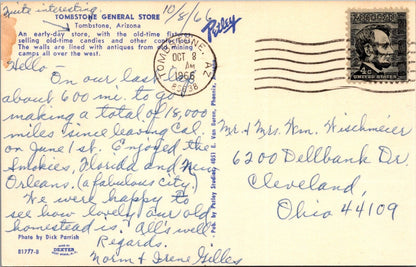 Quite interesting.
10/8/66
TOMBSTONE GENERAL STORE
Tombstone, Arizona
An early-day store, with the old-time fixtures
selling old-time candies and other confections.
The walls are lined with antiques from old mining
camps all over the west.
Hello -
On our last leg
about 600 mi. to go
making a total of 18,000
miles since leaving Cal.
on June 1st. Enjoyed the
Smokies, Florida and New
Orleans. (a fabulous city.)
We were happy to
see how lovely our old
homestead is. All's well
Regards.
Norm & Irene Gilles
Photo by Dick Parrish
R1777-B
DEXTER
Petley
Pub. by Petley Studios, 4051 E. Van Buren, Phoenix
TOMBSTONE, AZ
OCT 8
AM
1966
85638
UNITED STATES
Mr. & Mrs. Wm. Wischmeier
6200 Dellbank Dr.
Cleveland,
Ohio 44109